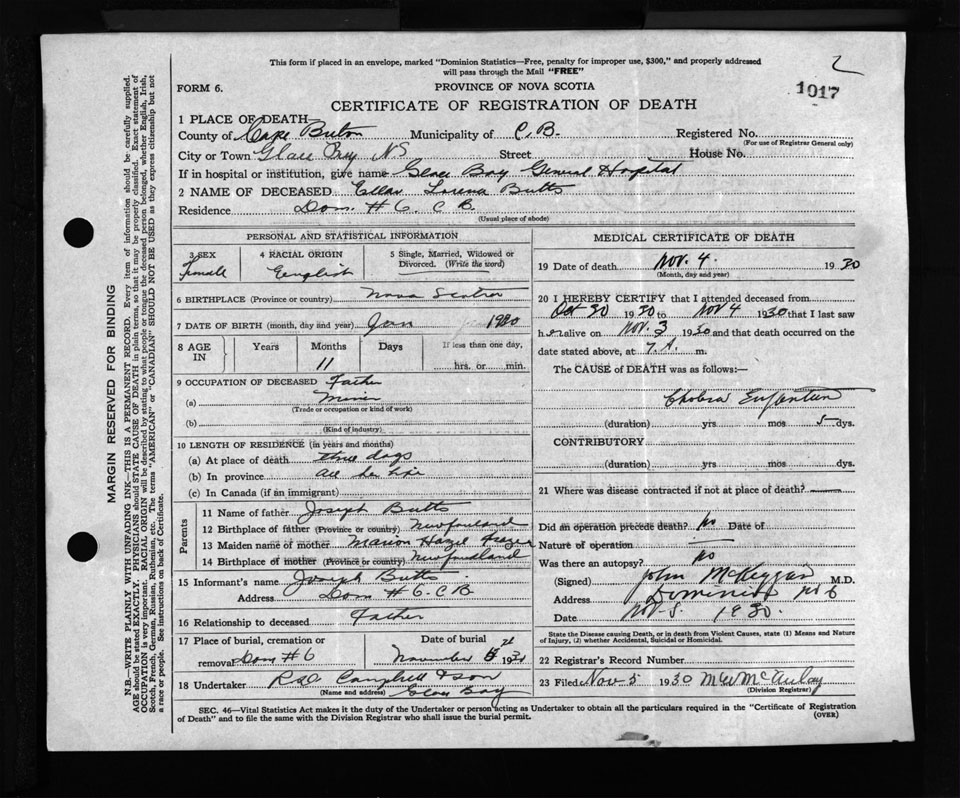 This form if placed in an envelope, marked "Dominion Statistics—Free, penalty for improper use, $300," and properly addressed
will pass through the Mail "FREE"
2
1017
FORM 6.
PROVINCE OF NOVA SCOTIA
CERTIFICATE OF REGISTRATION OF DEATH
1 PLACE OF DEATH
County of Cape Breton Municipality of C.B. Registered No.
(For use of Registrar General only)
City or Town Glace Bay NS Street House No.
If in hospital or institution, give name Glace Bay General Hospital
2 NAME OF DECEASED Ellen Lorena Butts
Residence Dom. # 6. C B.
(Usual place of abode)
PERSONAL AND STATISTICAL INFORMATION
3 SEX 4 RACIAL ORIGIN 5 Single, Married, Widowed or
Divorced. (Write the word)
Femell English
6 BIRTHPLACE (Province or country) Nova Scotia
7 DATE OF BIRTH (month, day and year) Jan 1920
8 AGE IN Years Months Days If less than one day,
11 hrs. or min.
9 OCCUPATION OF DECEASED Father
(a) Miner
(Trade or occupation or kind of work)
(b)
(Kind of industry)
10 LENGTH OF RESIDENCE (in years and months)
(a) At place of death three days
(b) In province all her life
(c) In Canada (if an immigrant)
Parents
11 Name of father Joseph Butts
12 Birthplace of father (Province or country) Newfounland
13 Maiden name of mother Marion Hazel
14 Birthplace of mother (Province or country) Newfoundland
15 Informant's name Joseph Butts
Address Dom # 6. C B.
16 Relationship to deceased Father
17 Place of burial, cremation or Date of burial
removal Dom # 6 November 193
18 Undertaker Campbell & son
(Name and address) Glace Bay
MEDICAL CERTIFICATE OF DEATH
19 Date of death Nov. 4. 1930
(Month, day and year)
20 I HEREBY CERTIFY that I attended deceased from
Oct 30 1930 to Nov 4 1930 that I last saw
h er alive on Nov. 3 1930 and that death occurred on
date stated above, at 7. A. m.
The CAUSE of DEATH was as follows:—
Cholera
(duration) yrs mos 5 dys.
CONTRIBUTORY
(duration) yrs mos dys.
21 Where was disease contracted if not at place of death?
Did an operation precede death? No Date of
Nature of operation
Was there an autopsy? No
(Signed) John McKeggan M.D.
Address Dominion No 6
Date Nov. 5. 1930.
State the Disease causing Death, or in death from Violent Causes, state (1) Means and Nature
of Injury, (2) whether Accidental, Suicidal or Homicidal.
22 Registrar's Record Number
23 Filed Nov 5 1930 M W McAulay
(Division Registrar)
SEC. 46—Vital Statistics Act makes it the duty of the Undertaker or person acting as Undertaker to obtain all the particulars required in the "Certificate of Registration
of Death" and to file the same with the Division Registrar who shall issue the burial permit.
(OVER)
MARGIN RESERVED FOR BINDING
N.B.—WRITE PLAINLY WITH UNFADING INK—THIS IS A PERMANENT RECORD. Every item of information should be carefully supplied.
AGE should be stated EXACTLY. PHYSICIANS should STATE CAUSE OF DEATH in plain terms, so that it may be properly classified. Exact statement of
OCCUPATION is very important. RACIAL ORIGIN will be described by stating to what people or tongue the deceased person belonged, whether English, Irish,
Scotch, French, German, Russian, Ruthenian, etc. The terms "AMERICAN" or "CANADIAN" SHOULD NOT BE USED as they express citizenship but not
a race or people. See instructions on back of Certificate.